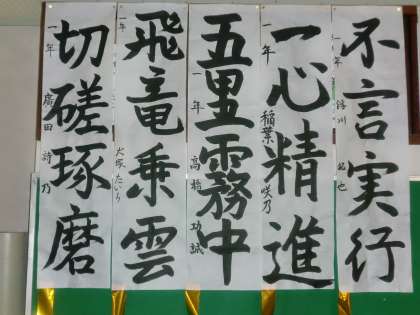 不言実行
一年
一心精進
一年 稲葉 咲乃
五里霧中
一年 高橋 功誠
飛竜乗雲
一年 犬塚 たいり
切磋琢磨
一年 廣田 詩乃